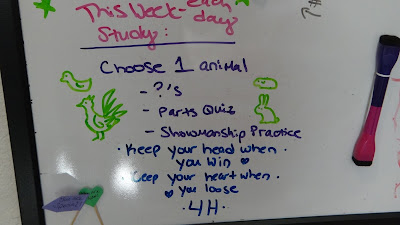 This Week - each
day
Study:
Choose 1 animal
- ?'s
- Parts Quiz
- Showmanship Practice
• Keep your head when •
you win
• Keep your heart when •
you loose
• 4H •